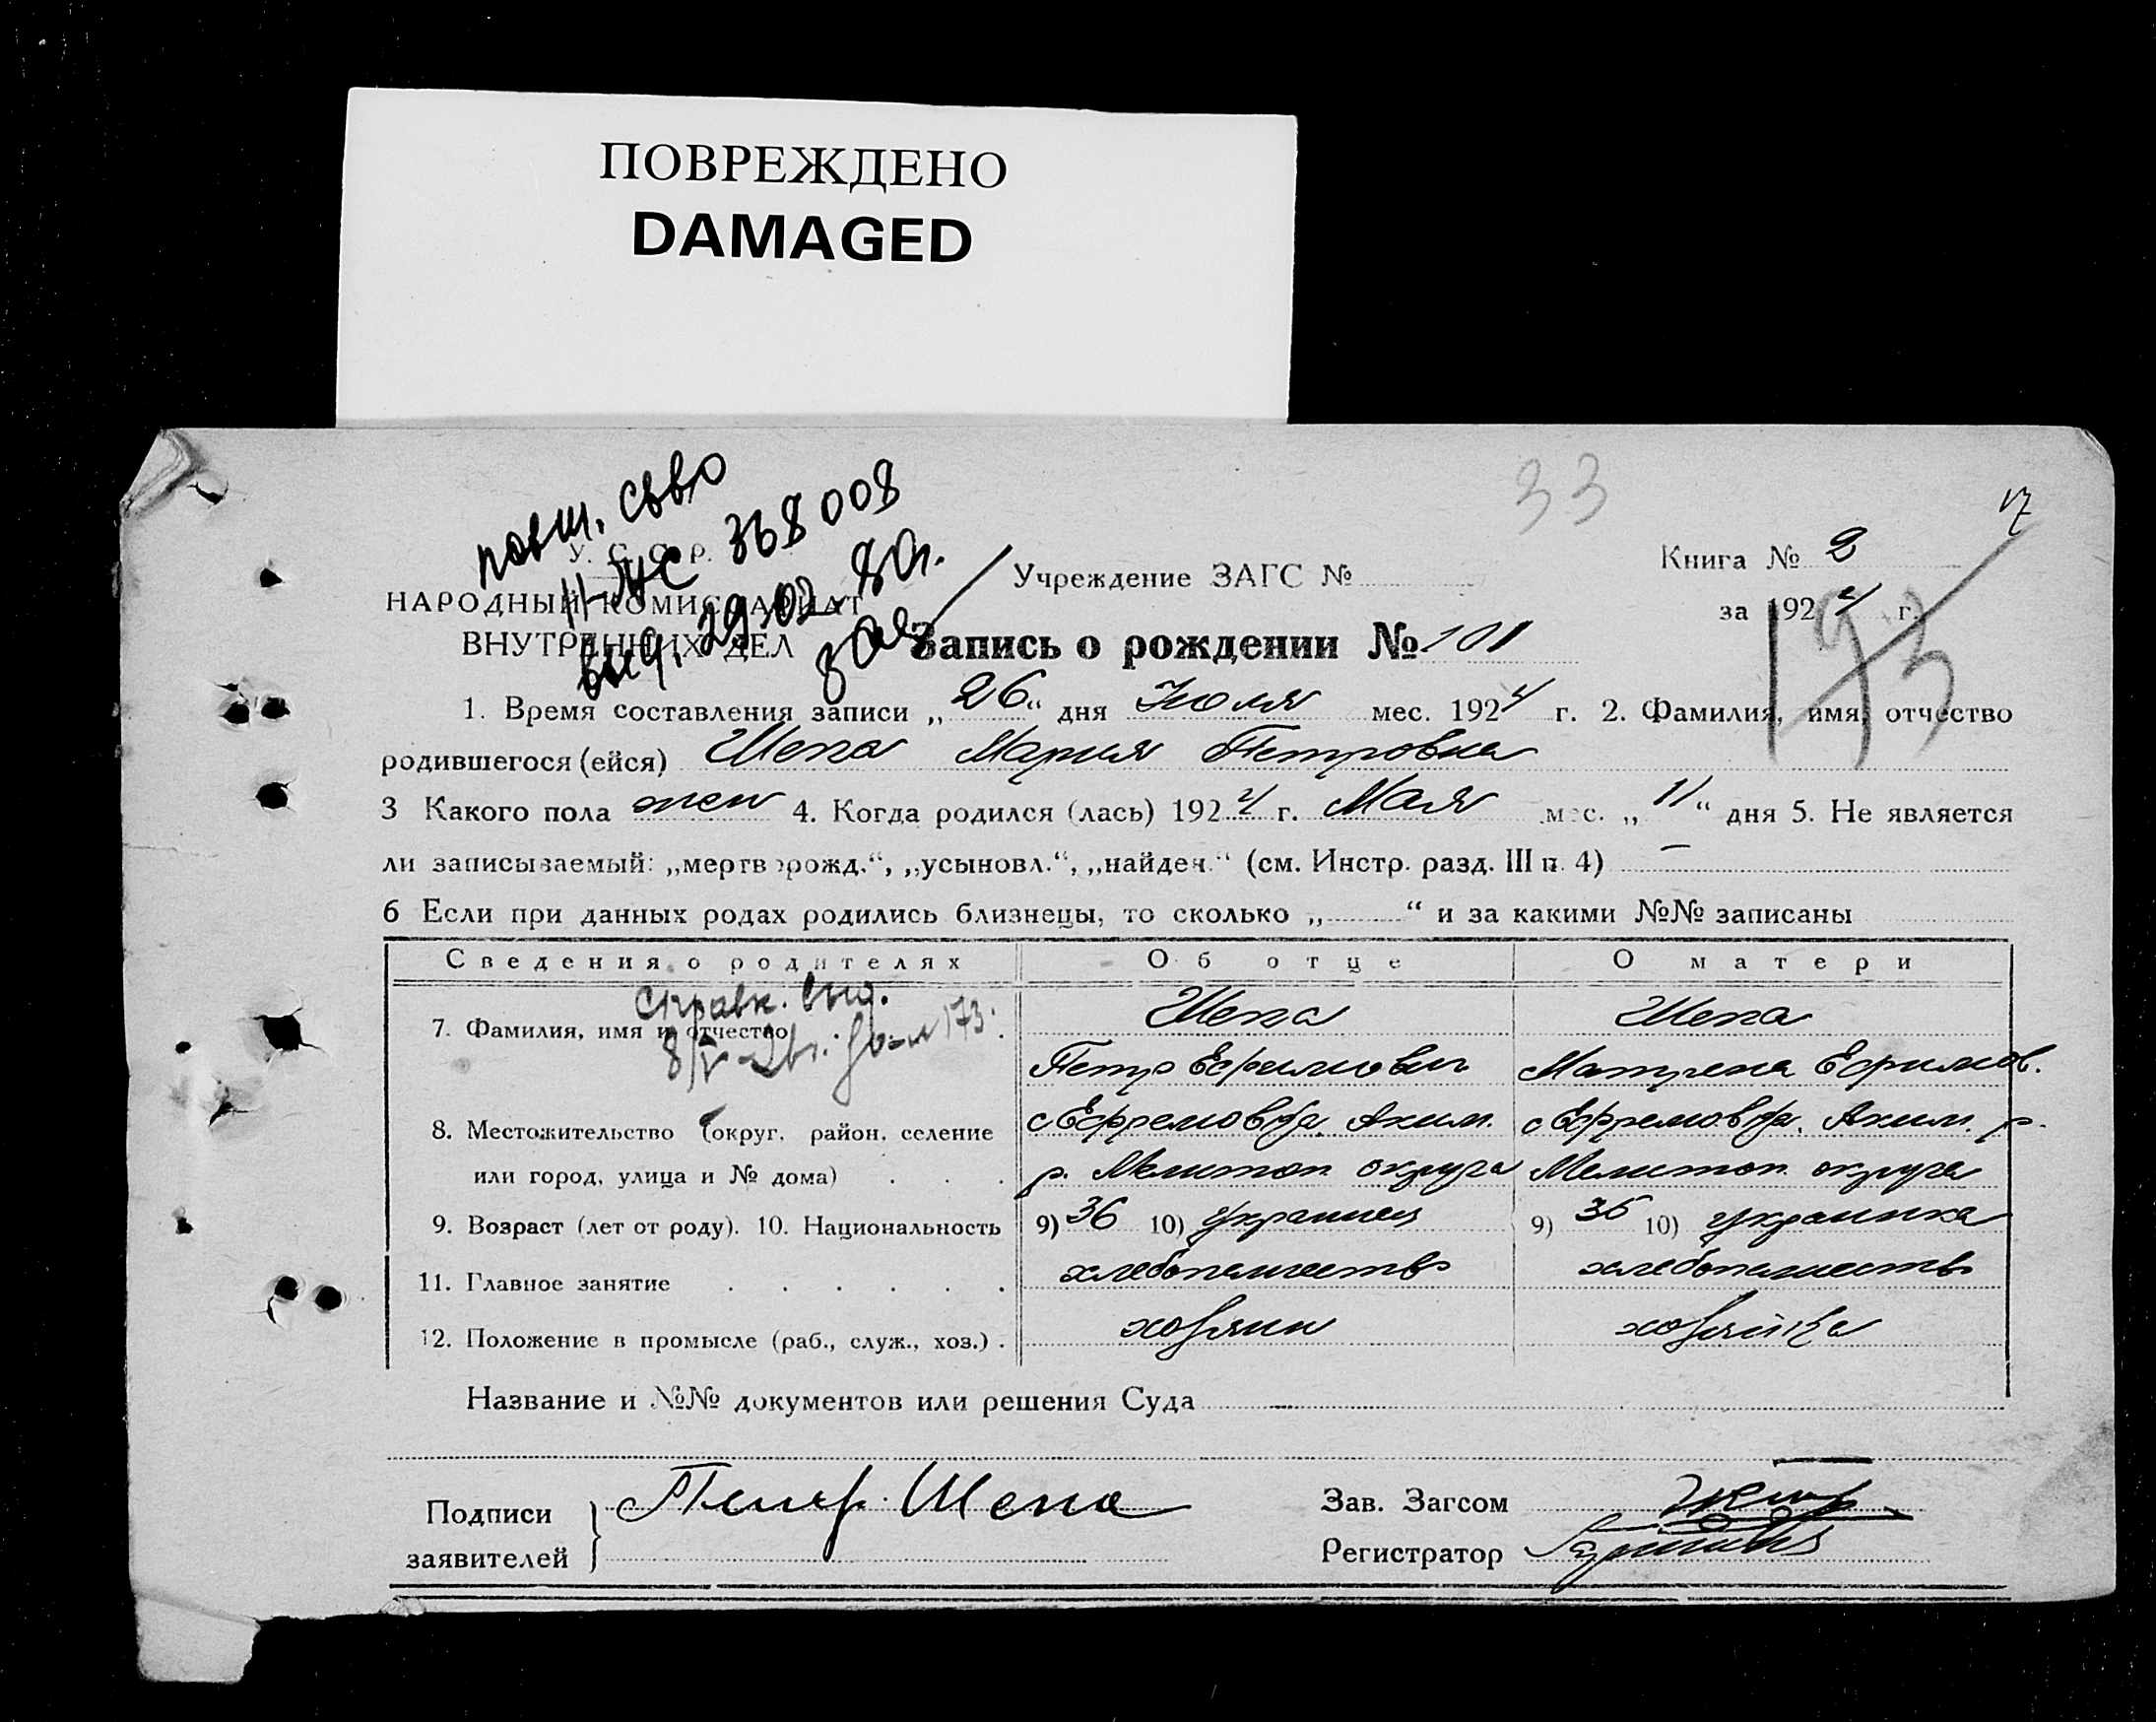 ПОВРЕЖДЕНО
DAMAGED
33
17
повт. свво
II-ЖС 368008
выд. 29.02.80г.
У. С. С. Р.
НАРОДНЫЙ КОМИССАРИАТ
ВНУТРЕННИХ ДЕЛ
Учреждение ЗАГС №
Книга № 2
за 1924 г.
193
Запись о рождении № 101
1. Время составления записи „26“ дня Июля мес. 1924 г. 2. Фамилия, имя, отчество
родившегося (ейся) Шепа Мария Петровна
3 Какого пола жен 4. Когда родился (лась) 1924 г. Мая мес. „11“ дня 5. Не является
ли записываемый: „мертворожд.“, „усыновл.“, „найден.“ (см. Инстр. разд. III п. 4) —
6 Если при данных родах родились близнецы, то сколько „ “ и за какими №№ записаны
Сведения о родителях Об отце О матери
справк. выд.
7. Фамилия, имя и отчество Шепа Шепа
Петр Ефимович Матрена Ефимов.
8. Местожительство (округ, район, селение с Ефремовка, Аким. с Ефремовка, Аким. р.
или город, улица и № дома) р. Мелитоп округа Мелитоп округа
9. Возраст (лет от роду). 10. Национальность 9) 36 10) украинец 9) 36 10) украинка
11. Главное занятие хлебопашество хлебопашеств
12. Положение в промысле (раб., служ., хоз.) хозяин хозяйка
Название и №№ документов или решения Суда —
Подписи заявителей Петр Шепа
Зав. Загсом
Регистратор